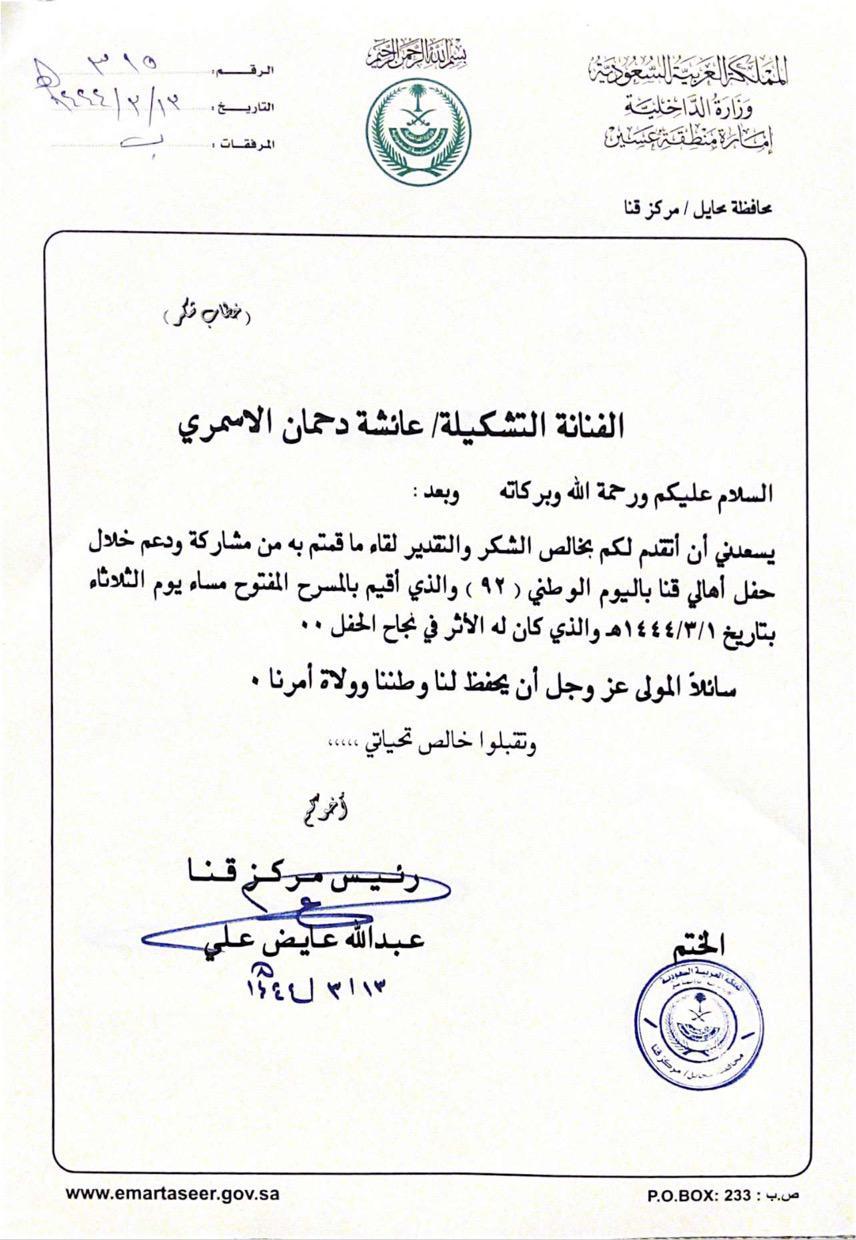 بسم الله الرحمن الرحيم
المملكة العربية السعودية
وزارة الداخلية
إمارة منطقة عسير
محافظة محايل / مركز قنا
الرقم : ٣١٥
التاريخ : ١٤٤٤/٣/١٣هـ
المرفقات :
(خطاب شكر)
الفنانة التشكيلة/ عائشة دحمان الاسمري
السلام عليكم ورحمة الله وبركاته وبعد :
يسعدني أن أتقدم لكم بخالص الشكر والتقدير لقاء ما قمتم به من مشاركة ودعم خلال
حفل أهالي قنا باليوم الوطني ( ٩٢ ) والذي أقيم بالمسرح المفتوح مساء يوم الثلاثاء
بتاريخ ١٤٤٤/٣/١هـ والذي كان له الأثر في نجاح الحفل ٠٠
سائلاً المولى عز وجل أن يحفظ لنا وطننا وولاة أمرنا ٠
وتقبلوا خالص تحياتي ،،،،،
أخوكم
رئيس مركز قنا
عبدالله عايض علي
١٤٤٤/٣/١٣هـ
الختم
المملكة العربية السعودية
محافظة محايل / مركز قنا
www.emartaseer.gov.sa
P.O.BOX: 233 : ص.ب